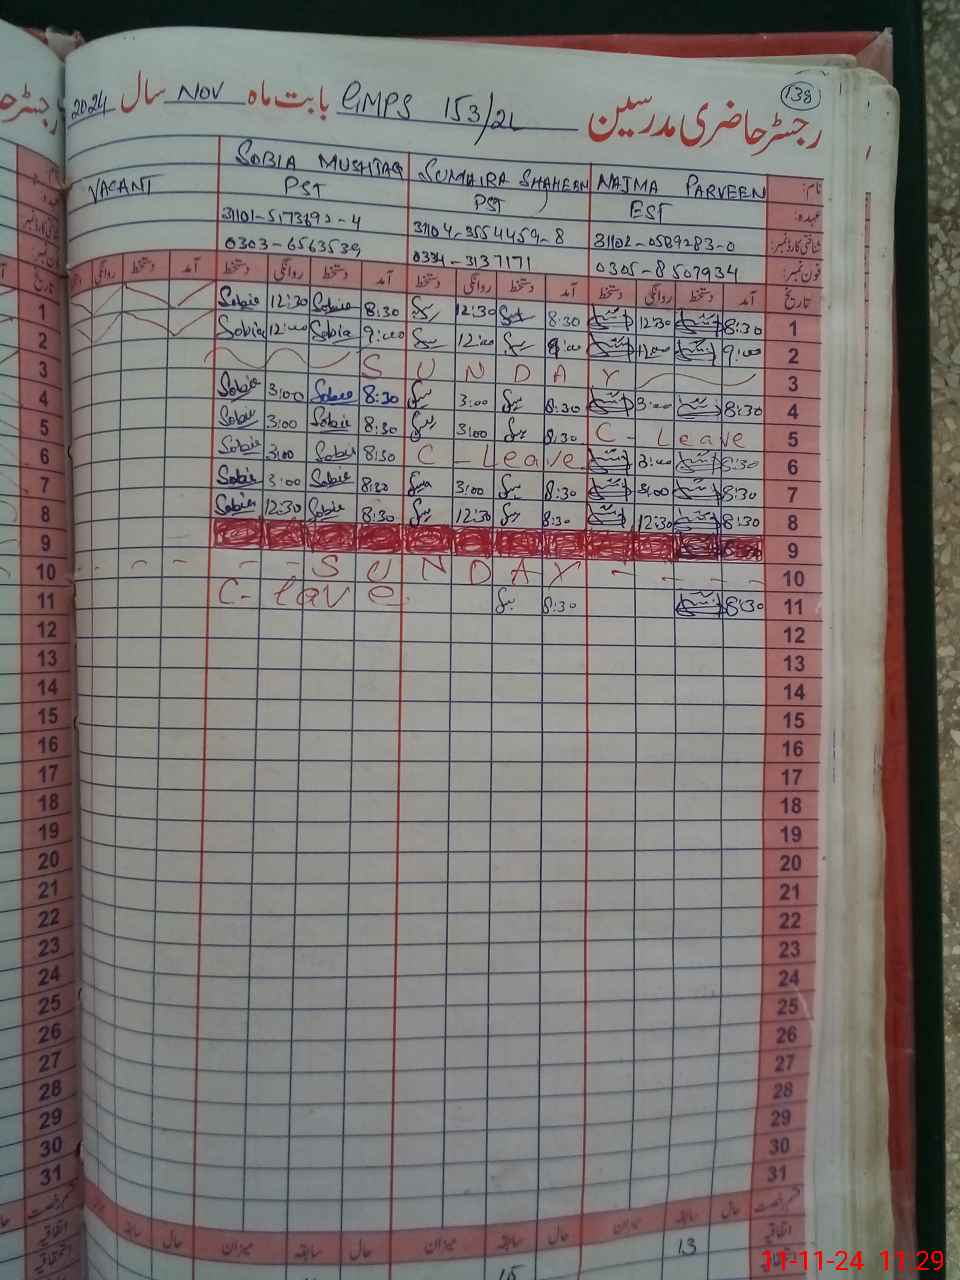 138
رجسٹر حاضری مدرسین GMPS 153/2L بابت ماہ NOV سال 2024
نام: NAJMA PARVEEN SUMAIRA SHAHEEN SOBIA MUSHTAQ VACANT
عہدہ: EST PST PST
شناختی کارڈ نمبر: 31102-0589283-0 31104-3554459-8
فون نمبر: 0305-8507934 0334-3137171 0303-6563539
تاریخ آمد دستخط روانگی دستخط آمد دستخط روانگی دستخط آمد دستخط روانگی دستخط آمد دستخط روانگی
1 8:30 12:30 8:30 12:30 8:30 Sobia 12:30 Sobia 1
2 9:00 12:00 9:00 12:00 9:00 Sobia 12:00 Sobia 2
3 SUNDAY 3
4 8:30 3:00 8:30 3:00 8:30 Sobia 3:00 Sobia 4
5 C - Leave 8:30 3:00 8:30 Sobia 3:00 Sobia 5
6 8:30 3:00 C - Leave 8:30 Sobia 3:00 Sobia 6
7 8:30 3:00 8:30 3:00 8:30 Sobia 3:00 Sobia 7
8 8:30 12:30 8:30 12:30 8:30 Sobia 12:30 Sobia 8
9 9
10 - - - - SUNDAY - - - - - 10
11 8:30 8:30 C - leave 11
12 12
13 13
14 14
15 15
16 16
17 17
18 18
19 19
20 20
21 21
22 22
23 23
24 24
25 25
26 26
27 27
28 28
29 29
30 30
31 31
حال سابقہ میزان حال سابقہ میزان حال سابقہ میزان حال سابقہ
اتفاقیہ 13 15
11-11-24 11:29